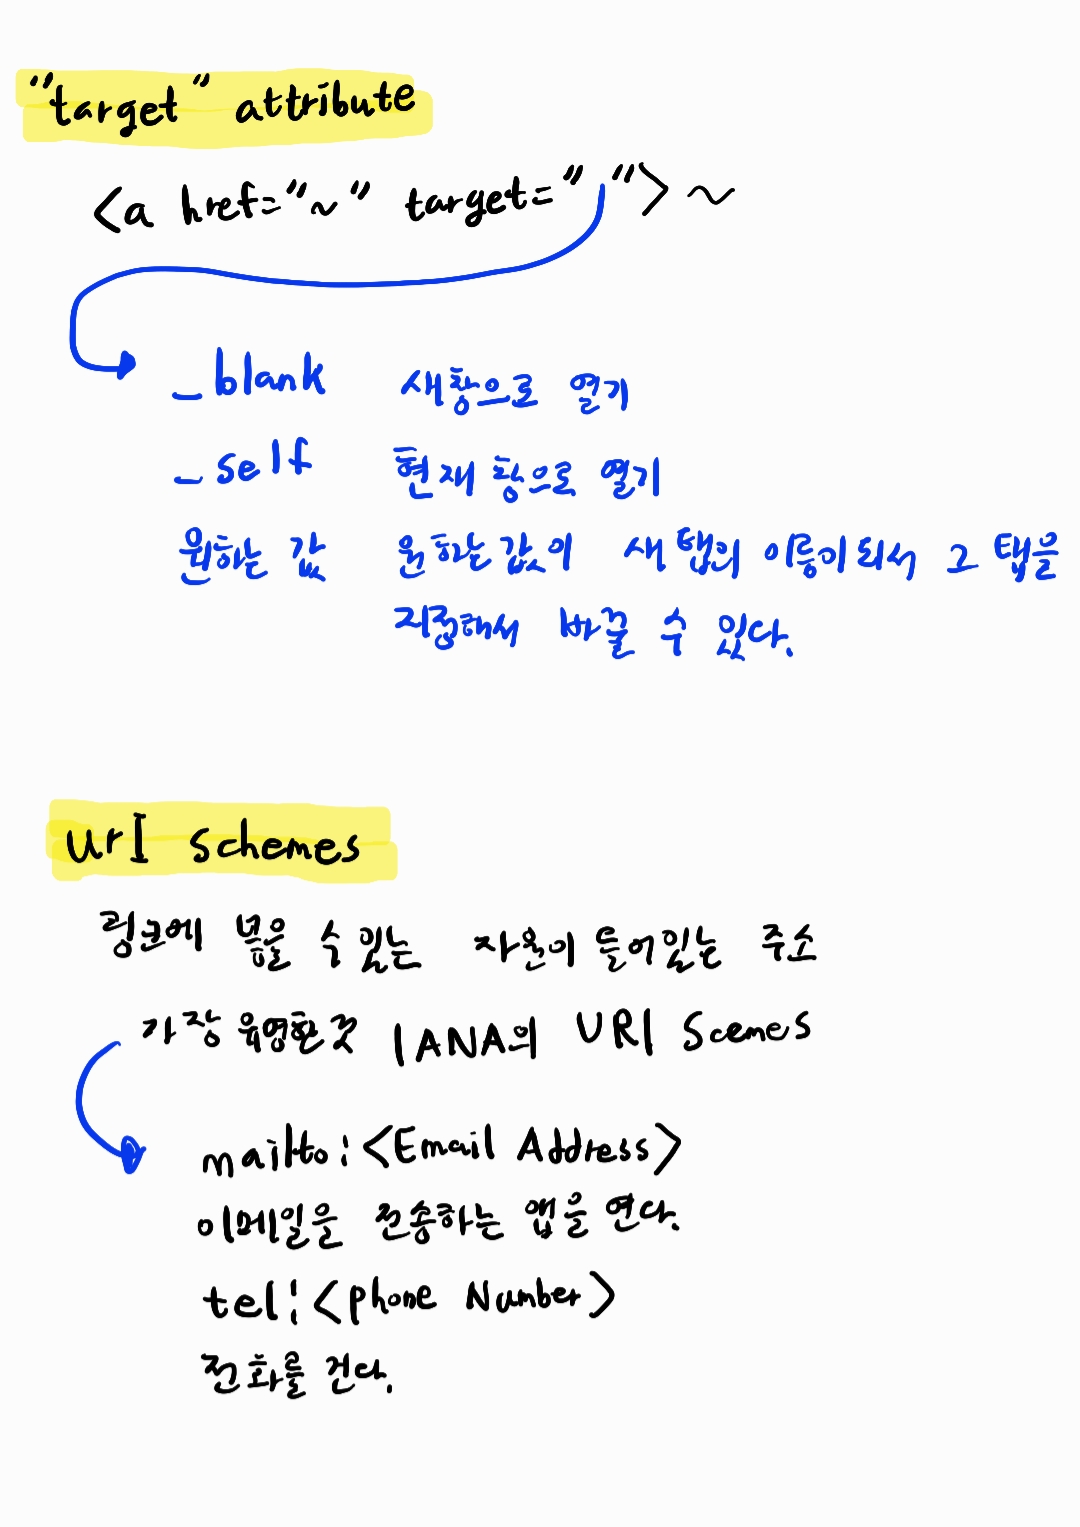 "target" attribute
<a href="~" target=" "> ~
_blank 새창으로 열기
_self 현재 창으로 열기
원하는 값 원하는 값이 새 탭의 이름이 되서 그 탭을
지정해서 바꿀 수 있다.
urI schemes
링크에 넣을 수 있는 자원이 들어있는 주소
가장 유명한것 IANA의 URI Scemes
mailto:<Email Address>
이메일을 전송하는 앱을 연다.
tel:<phone Number>
전화를 건다.